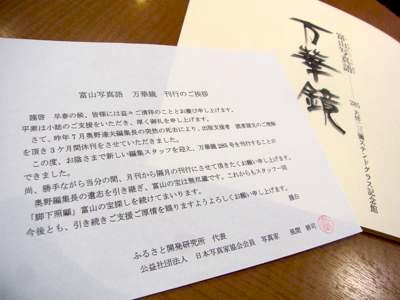 富山写真語 万華鏡 刊行のご挨拶
謹啓 早春の候、皆様には益々ご清祥のこととお慶び申し上げます。
平素は小誌のご支援をいただき、厚く御礼を申し上げます。
さて、昨年7月奥野達夫編集長の突然の死去により、出版支援者 読者諸兄のご理解
を頂き3ケ月間休刊をさせていただきました。
この度、お陰さまで新しい編集スタッフを迎え、万華鏡285号を刊行することが
できました。
尚、勝手ながら当分の間、月刊から隔月の刊行にさせて頂きたくお願い申し上げます。
奥野編集長の遺志を引き継ぎ、富山の宝は無尽蔵です。これからもスタッフ一同
「脚下照顧」富山の宝探しを続けてまいります。
今後とも、引き続きご支援ご厚情を賜りますようよろしくお願い申し上げます。
謹白
ふるさと開発研究所 代表
公益社団法人 日本写真家協会会員 写真家 風間 耕司
富山写真語
万華鏡
285
ステンドグラス記念館